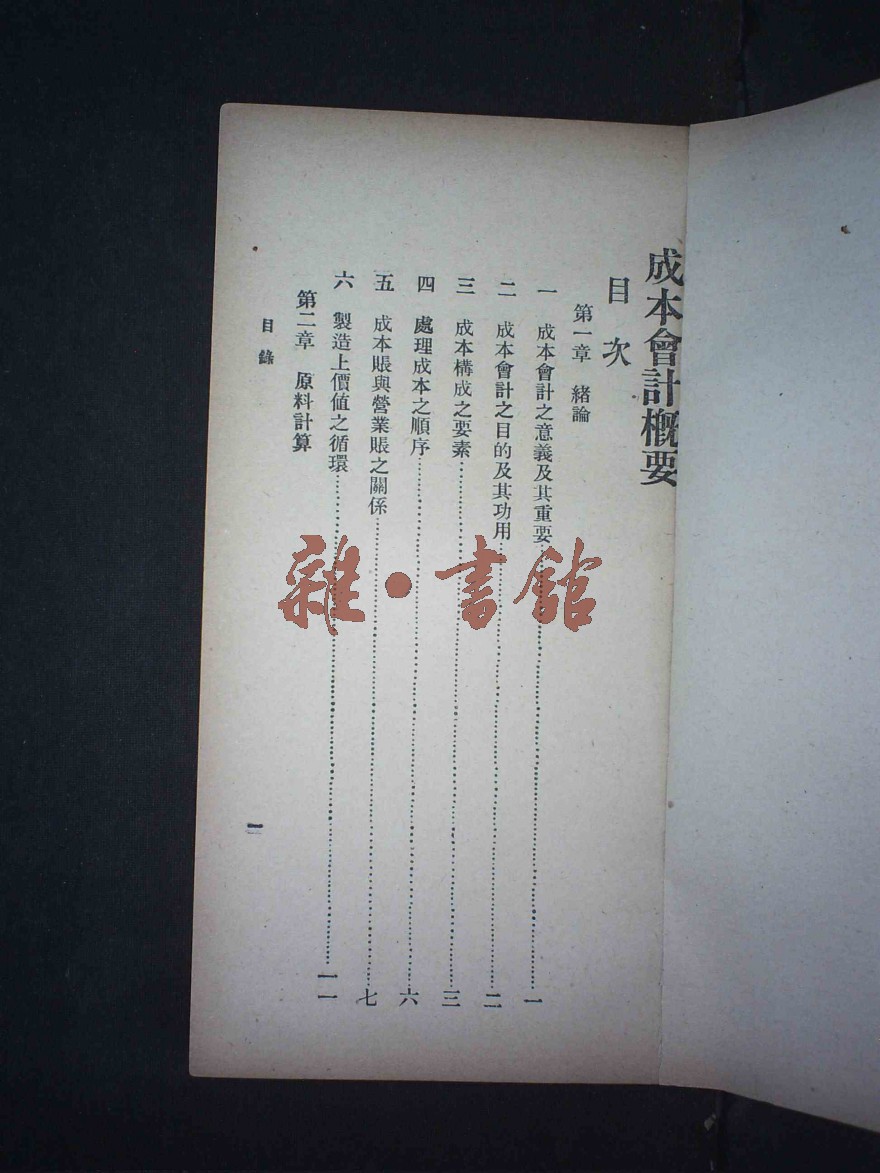 成本會計概要
目次
第一章 緒論
一 成本會計之意義及其重要……一
二 成本會計之目的及其功用……二
三 成本構成之要素……三
四 處理成本之順序……六
五 成本賬與營業賬之關係……七
六 製造上價值之循環……一一
第二章 原料計算
目錄
一
雜·書館